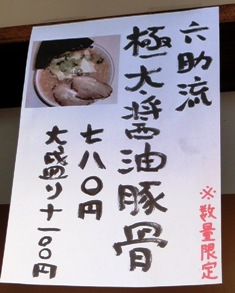 六助流
極太醤油豚骨
七八〇円
大盛り十一〇〇円
※数量限定